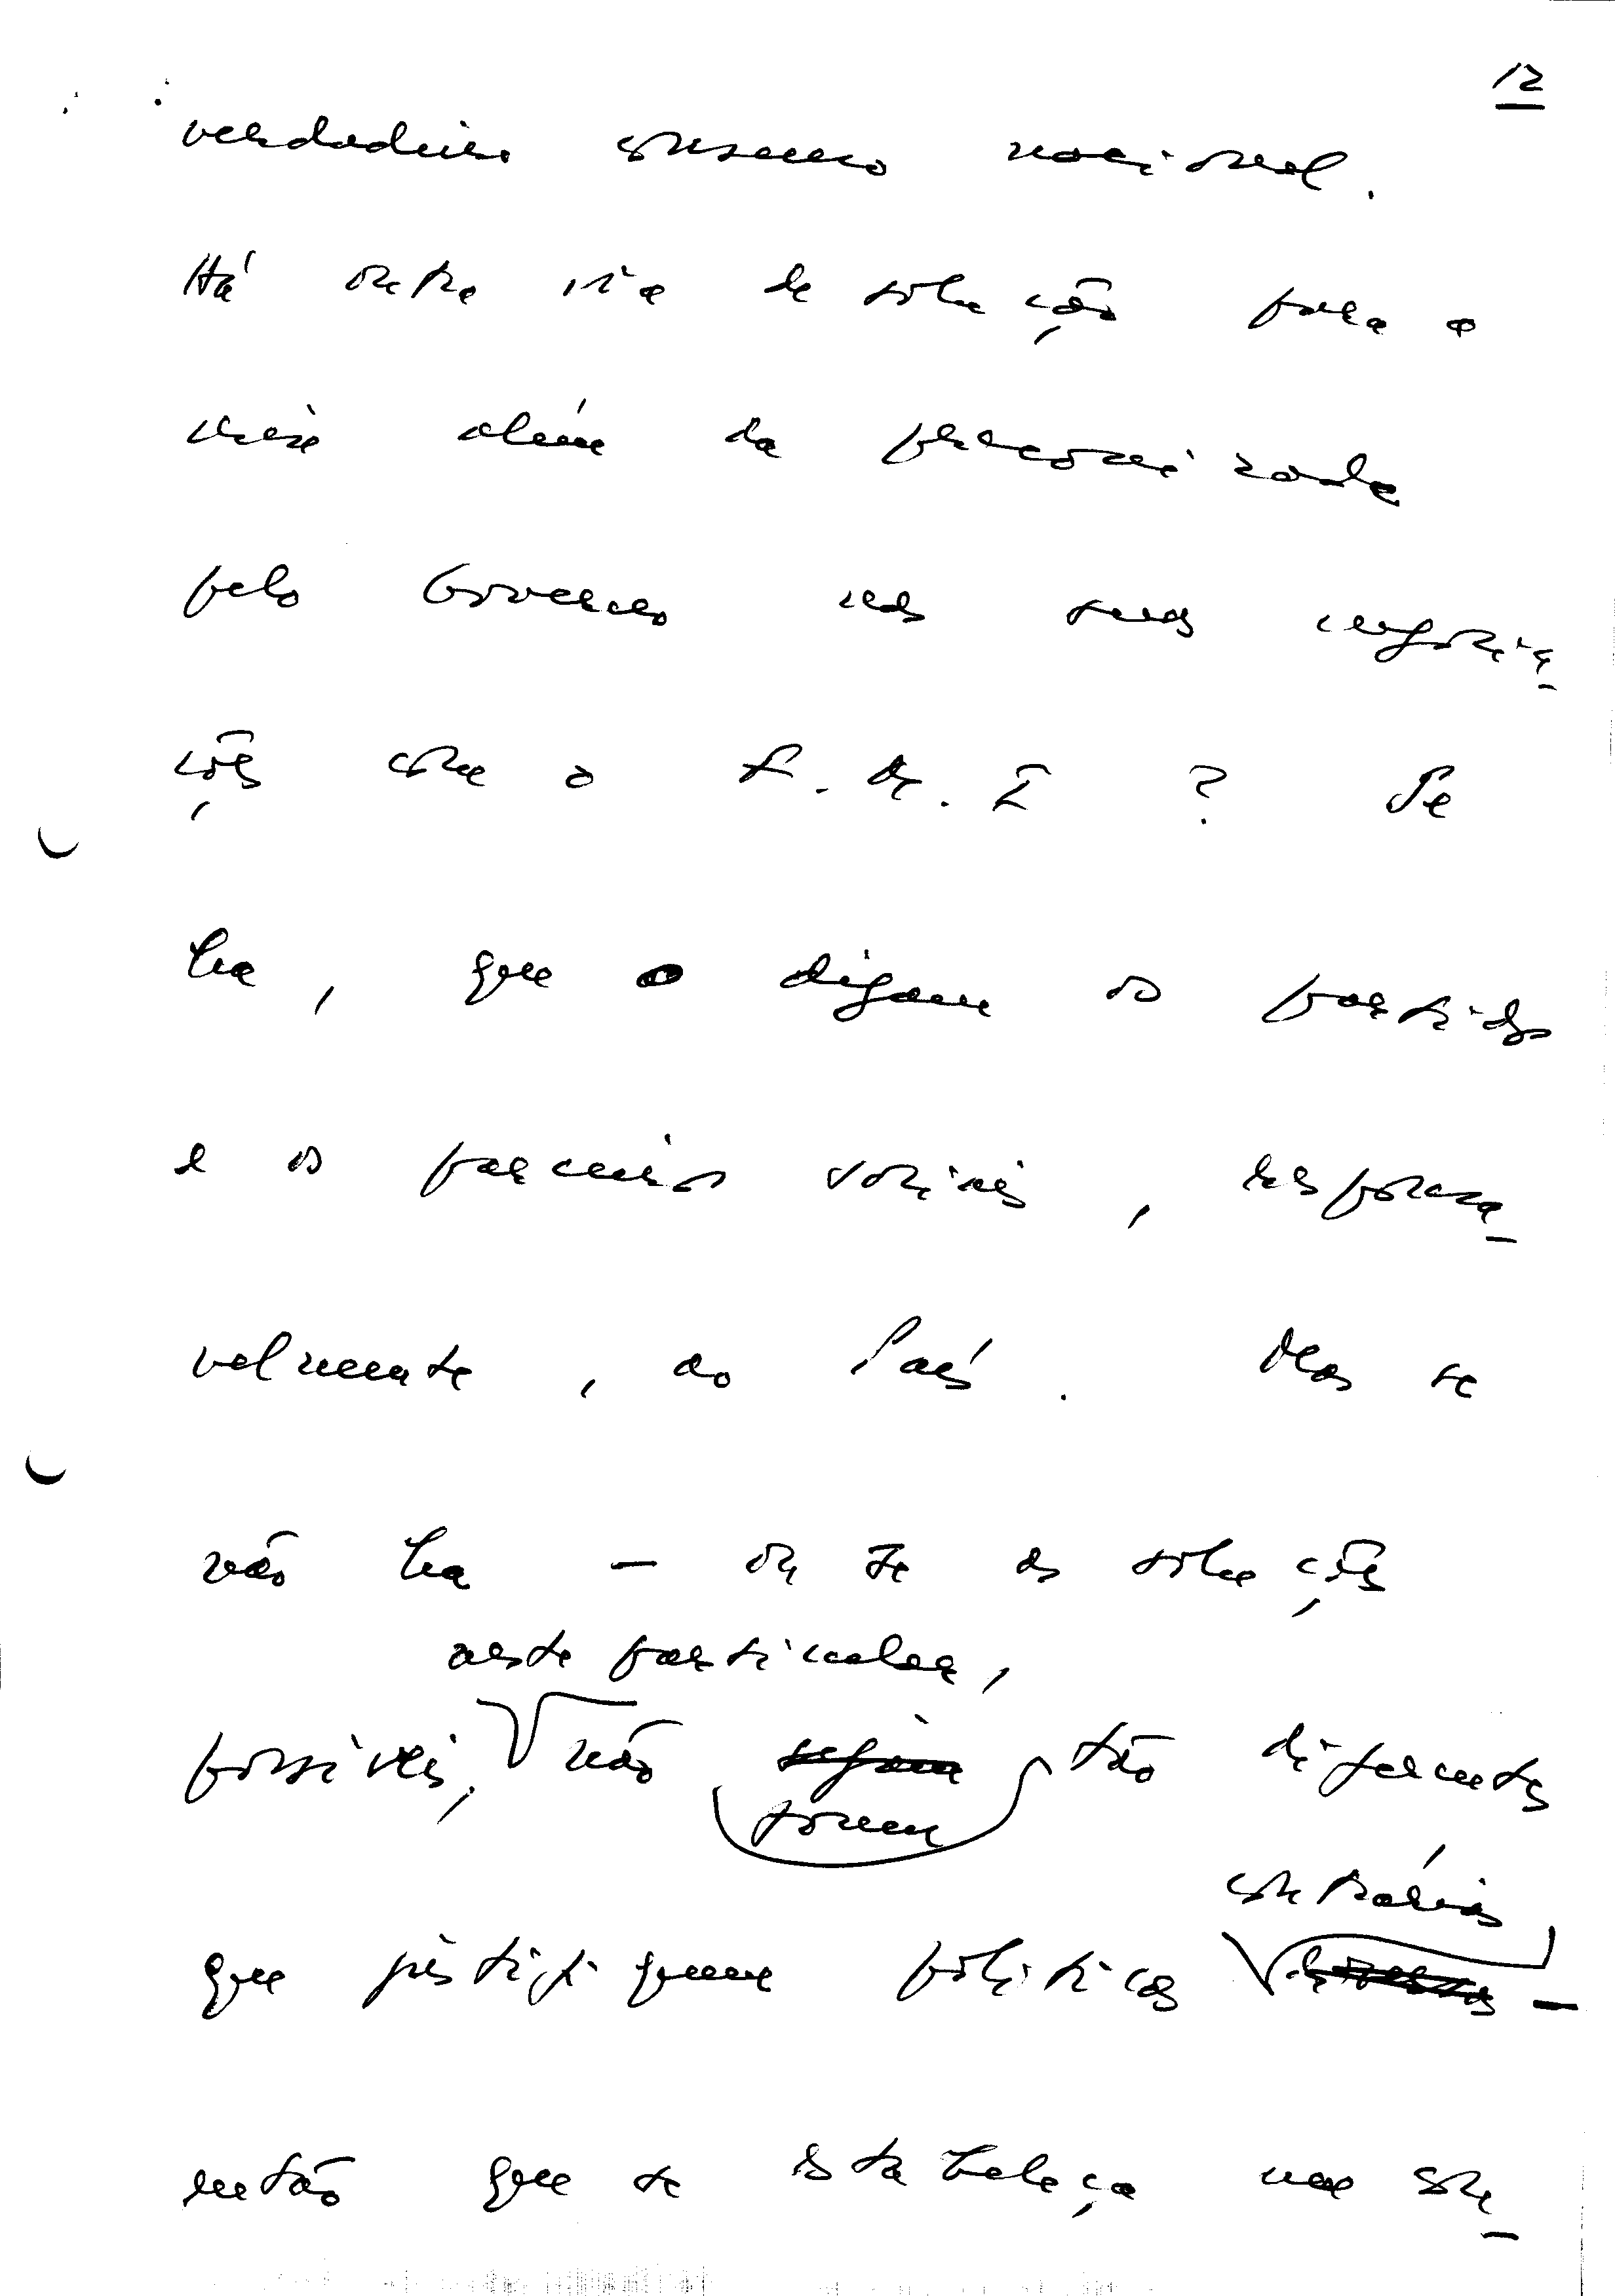 12
verdadeiro consenso nacional.
Há outra via de solução para a
crise além da preconizada
pelo Governo nas suas negocia_
ções com o F.M.I? Se
ha, que o digam os partidos
e os parceiros sociais, responsa_
velmente, ao País. Mas se
não ha – ou se as soluções
neste particular,
possíveis, não sejam tão diferentes
forem
contrárias
que justifiquem políticas diversas –
então que se estabeleça um con_